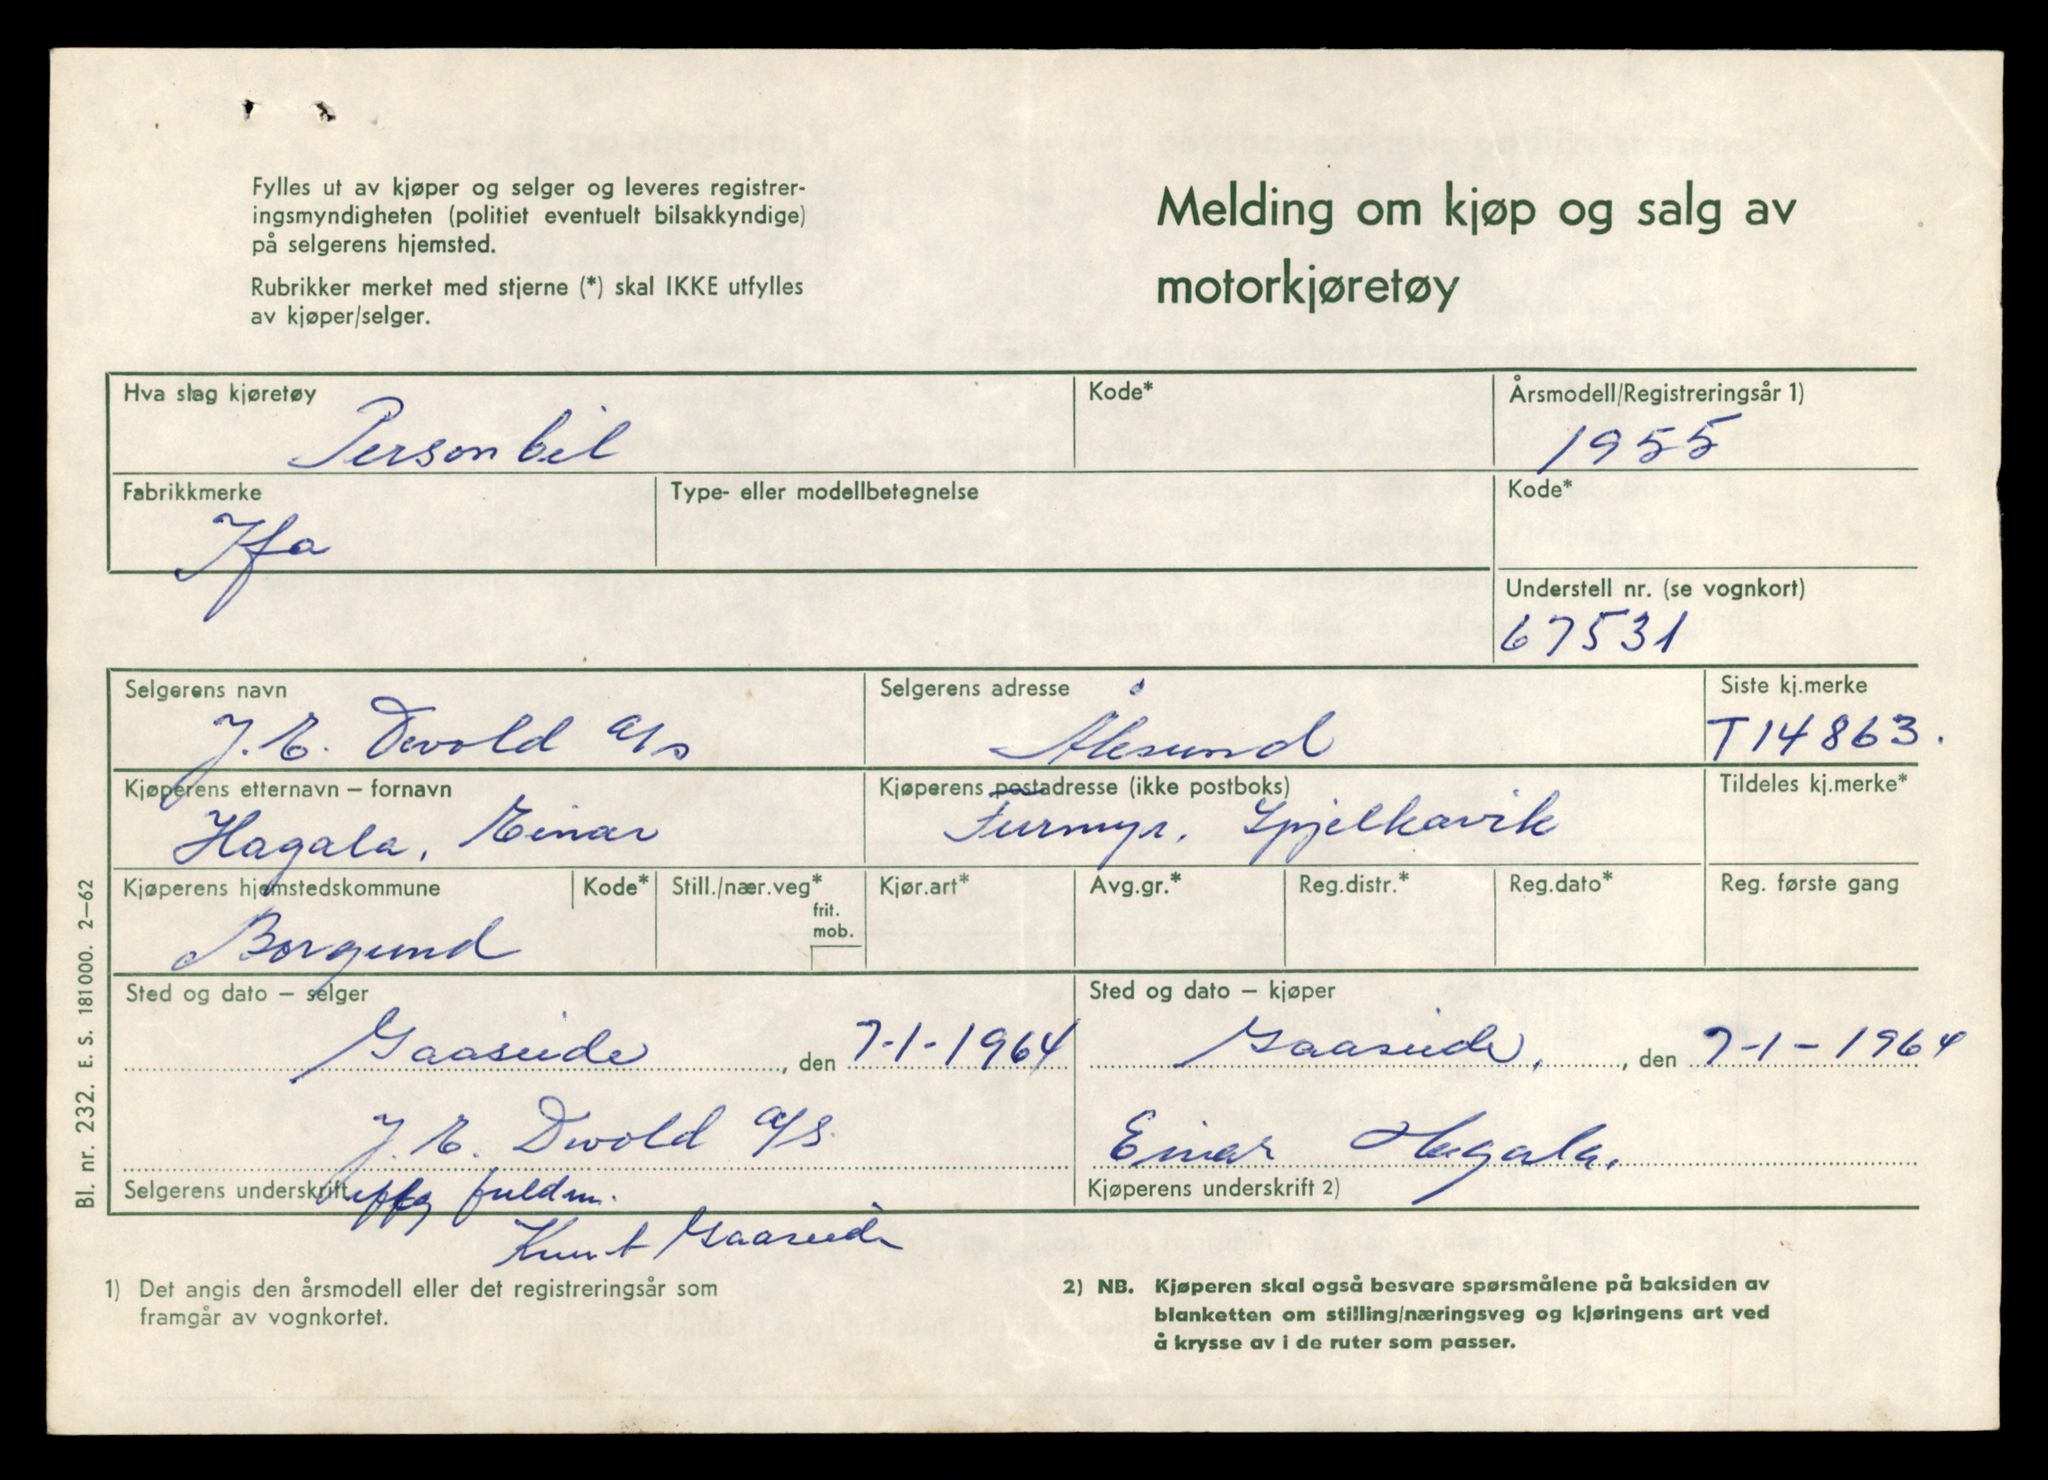 Fylles ut av kjøper og selger og leveres registrer-
ingsmyndigheten (politiet eventuelt bilsakkyndige)
på selgerens hjemsted.
Rubrikker merket med stjerne (*) skal IKKE utfylles
av kjøper/selger.
Melding om kjøp og salg av
motorkjøretøy
Hva slag kjøretøy Kode* Årsmodell/Registreringsår 1)
Personbil 1955
Fabrikkmerke Type- eller modellbetegnelse Kode*
Ifa
Understell nr. (se vognkort)
67531
Selgerens navn Selgerens adresse Siste kj.merke
J. E. Devold a/s Ålesund T14863.
Kjøperens etternavn – fornavn Kjøperens postadresse (ikke postboks) Tildeles kj.merke*
Hagala, Einar Furmyr, Spjelkavik
Kjøperens hjemstedskommune Kode* Still./nær.veg* Kjør.art* Avg.gr.* Reg.distr.* Reg.dato* Reg. første gang
frit.
mob.
Borgund
Sted og dato – selger Sted og dato – kjøper
Gaaseide, den 7-1-1964 Gaaseide, den 7-1-1964
J. E. Devold a/s. Einar Hagala.
Selgerens underskrift Kjøperens underskrift 2)
fuldm.
Knut Gaaseide
1) Det angis den årsmodell eller det registreringsår som
framgår av vognkortet.
2) NB. Kjøperen skal også besvare spørsmålene på baksiden av
blanketten om stilling/næringsveg og kjøringens art ved
å krysse av i de ruter som passer.
Bl. nr. 232. E. S. 181000. 2–62